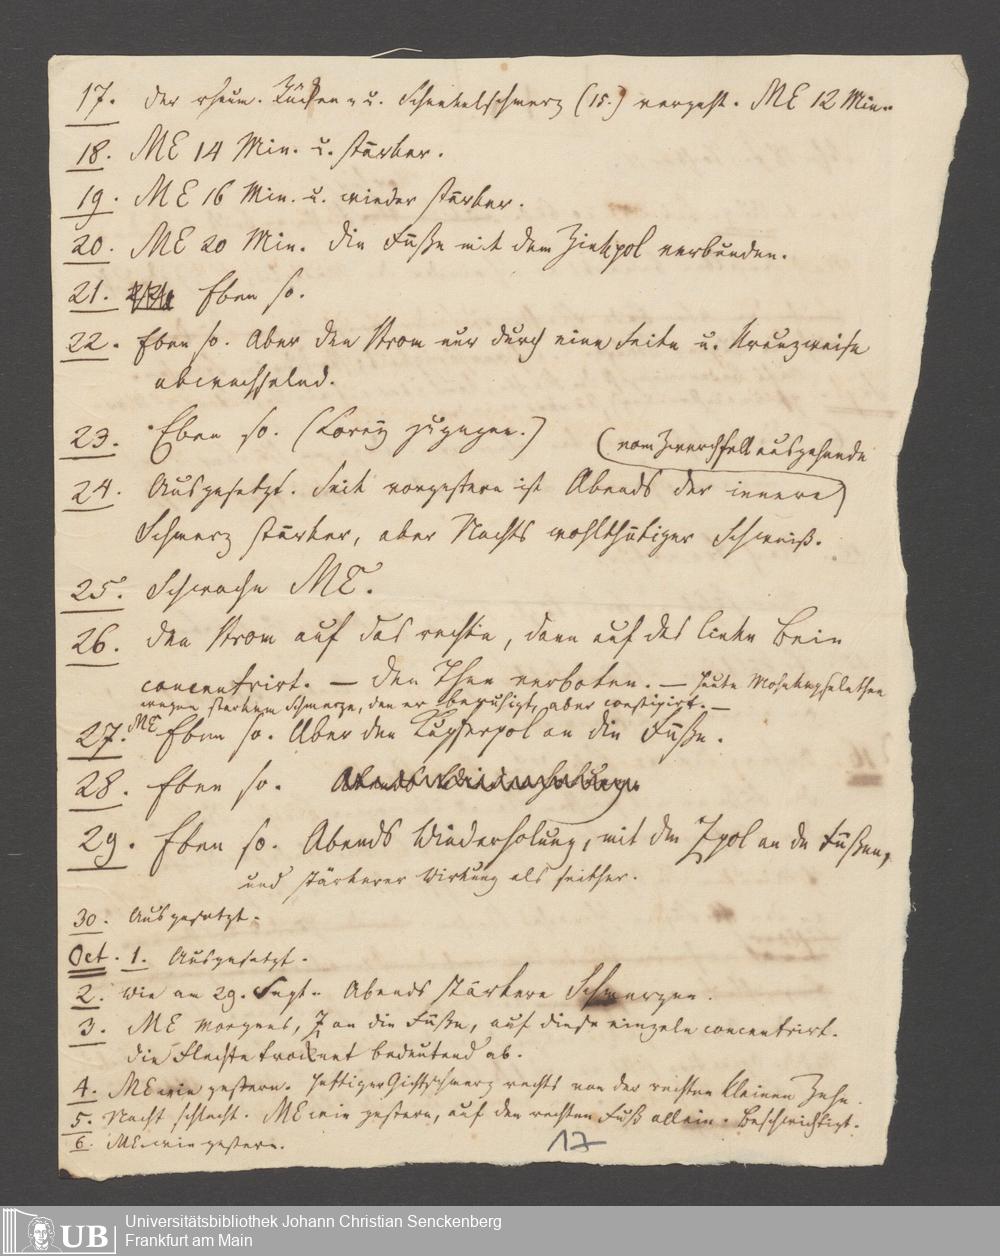 17. der rheum. Rücken- u. Schenkelschmerz (15.) vergeht. ME 12 Min.
18. ME 14 Min. u. stärker.
19. ME 16 Min. u. wieder stärker.
20. ME 20 Min. die Füße mit dem Zinkpol verbunden.
21. Eben so.
22. Eben so. Aber den Strom nur durch eine Seite u. Kreuzweise
abwechselnd.
23. Eben so. (Lorey zugegen.)
(vom Zwerchfell ausgehende
24. Ausgesetzt. Seit vorgestern ist Abends der innere)
Schmerz stärker, aber Nachts wohlthätiger Schweiß.
25. Schwache ME.
26. den Strom auf das rechte, dann auf das linke Bein
concentrirt. — den Thee verboten. — heute Mohnkopfelthee
wegen starkem Schmerze, den er beruhigt, aber constipirt. —
27. ME Eben so. Aber den Kupferpol an die Füße.
28. Eben so.
29. Eben so. Abends Wiederholung, mit dem Zpol an de Füßen,
und stärkerer Wirkung als seither.
30. Ausgesetzt.
Oct. 1. Ausgesetzt.
2. Wie am 29. Sept. Abends stärkere Schmerzen.
3. ME Morgens, Z an die Füße, auf diese einzeln concentrirt.
die Flechte trocknet bedeutend ab.
4. ME wie gestern. Heftiger Gichtschmerz rechts von der rechten kleinen Zehe.
5. Nacht schlecht. ME wie gestern, auf den rechten Fuß allein. Beschwichtigt.
6. ME wie gestern.
17
UB
Universitätsbibliothek Johann Christian Senckenberg
Frankfurt am Main